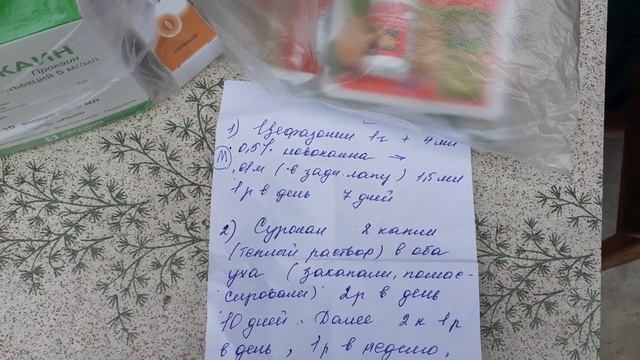 КАИН
Прокаин
5 мг/мл
1) Цефазолин 1г + 4 мл
0,5% новокаина →
в/м (в задн. лапу) 1,5 мл
1 р в день 7 дней
2) Суролан 2 капли
(теплый раствор) в оба
уха (закапали, помас-
сировали) 2р в день
10 дней. Далее 2 к 1 р
в день, 1р в неделю,